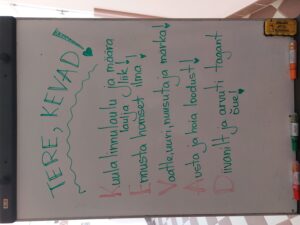 TERE, KEVAD!
Kuula linnulaulu ja määra
laulja liik!
Ennusta homset ilma!
Vaatle, uuri, nuusuta ja märka!
Austa ja hoia loodust!
Diivanilt ja arvuti tagant
õue!